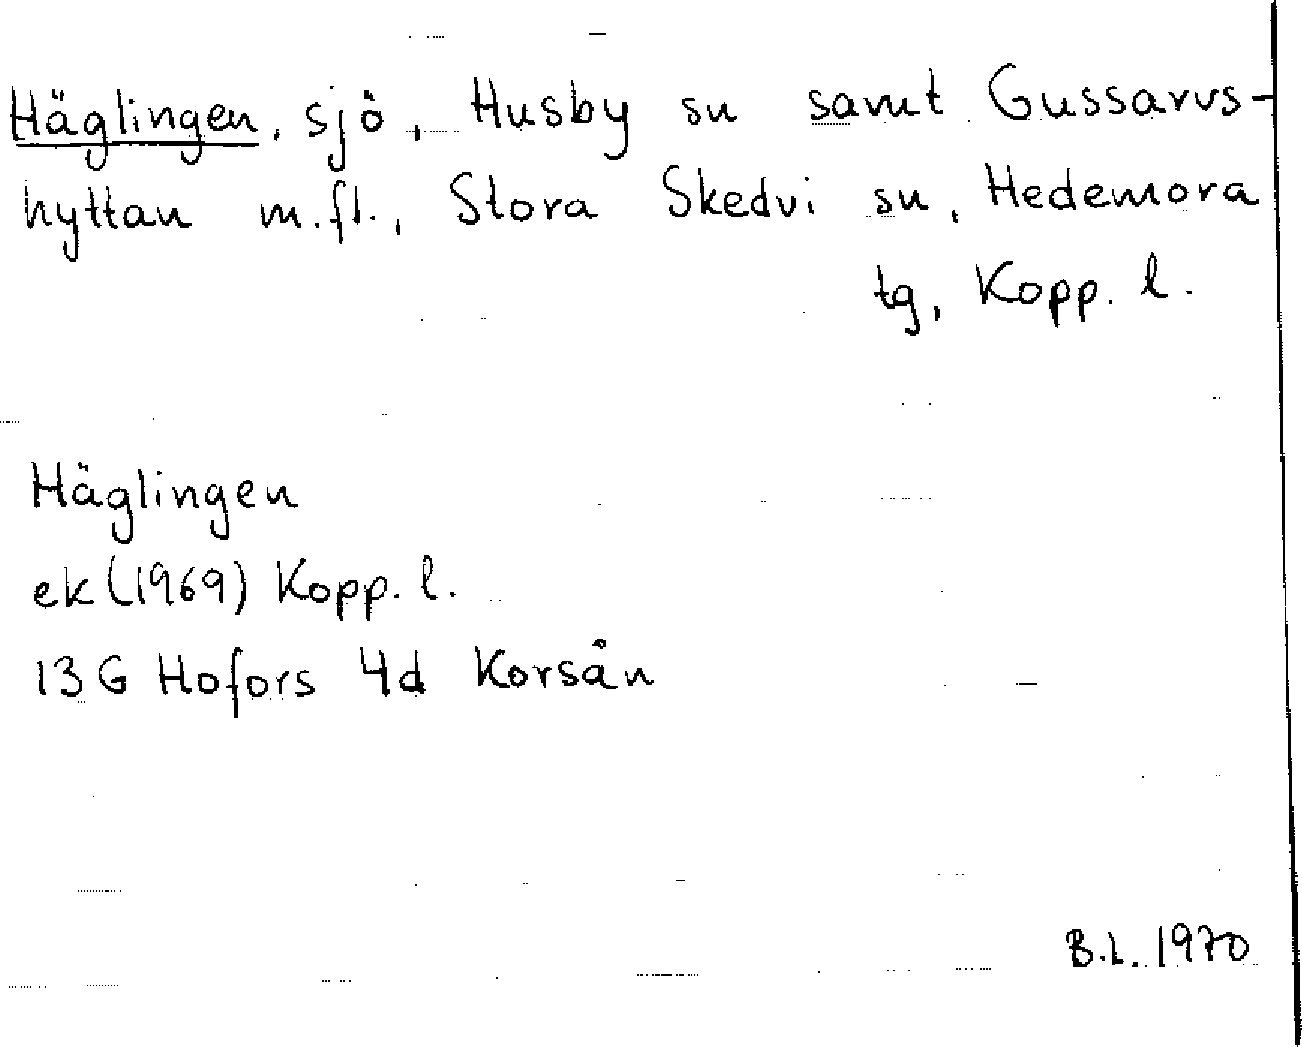 Häglingen, sjö, Husby sn samt Gussarvs-
hyttan m.fl., Stora Skedvi sn, Hedemora
tg, Kopp. l.
Häglingen
ek (1969) Kopp. l.
13 G Hofors 4d Korsån
B.L. 1970